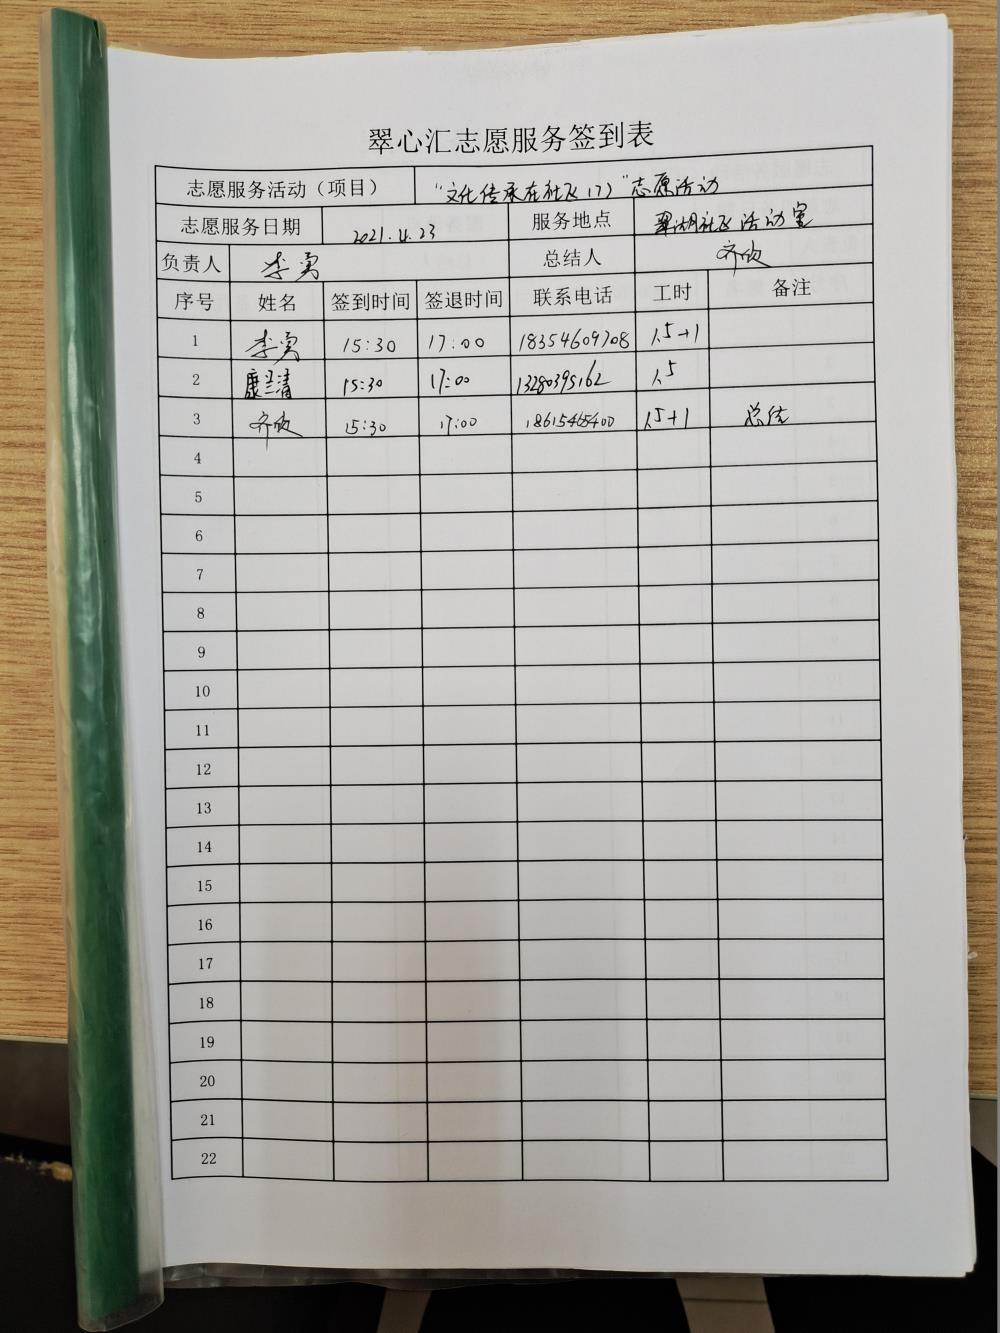 翠心汇志愿服务签到表
志愿服务活动（项目） “文化传承在社区172”志愿活动
志愿服务日期 2021.4.23 服务地点 翠湖社区活动室
负责人 李勇 总结人 齐欣
序号 姓名 签到时间 签退时间 联系电话 工时 备注
1 李勇 15:30 17:00 18354609708 1.5+1
2 康兰清 15:30 17:00 13280395162 1.5
3 齐欣 15:30 17:00 18615465400 1.5+1 总结
4
5
6
7
8
9
10
11
12
13
14
15
16
17
18
19
20
21
22